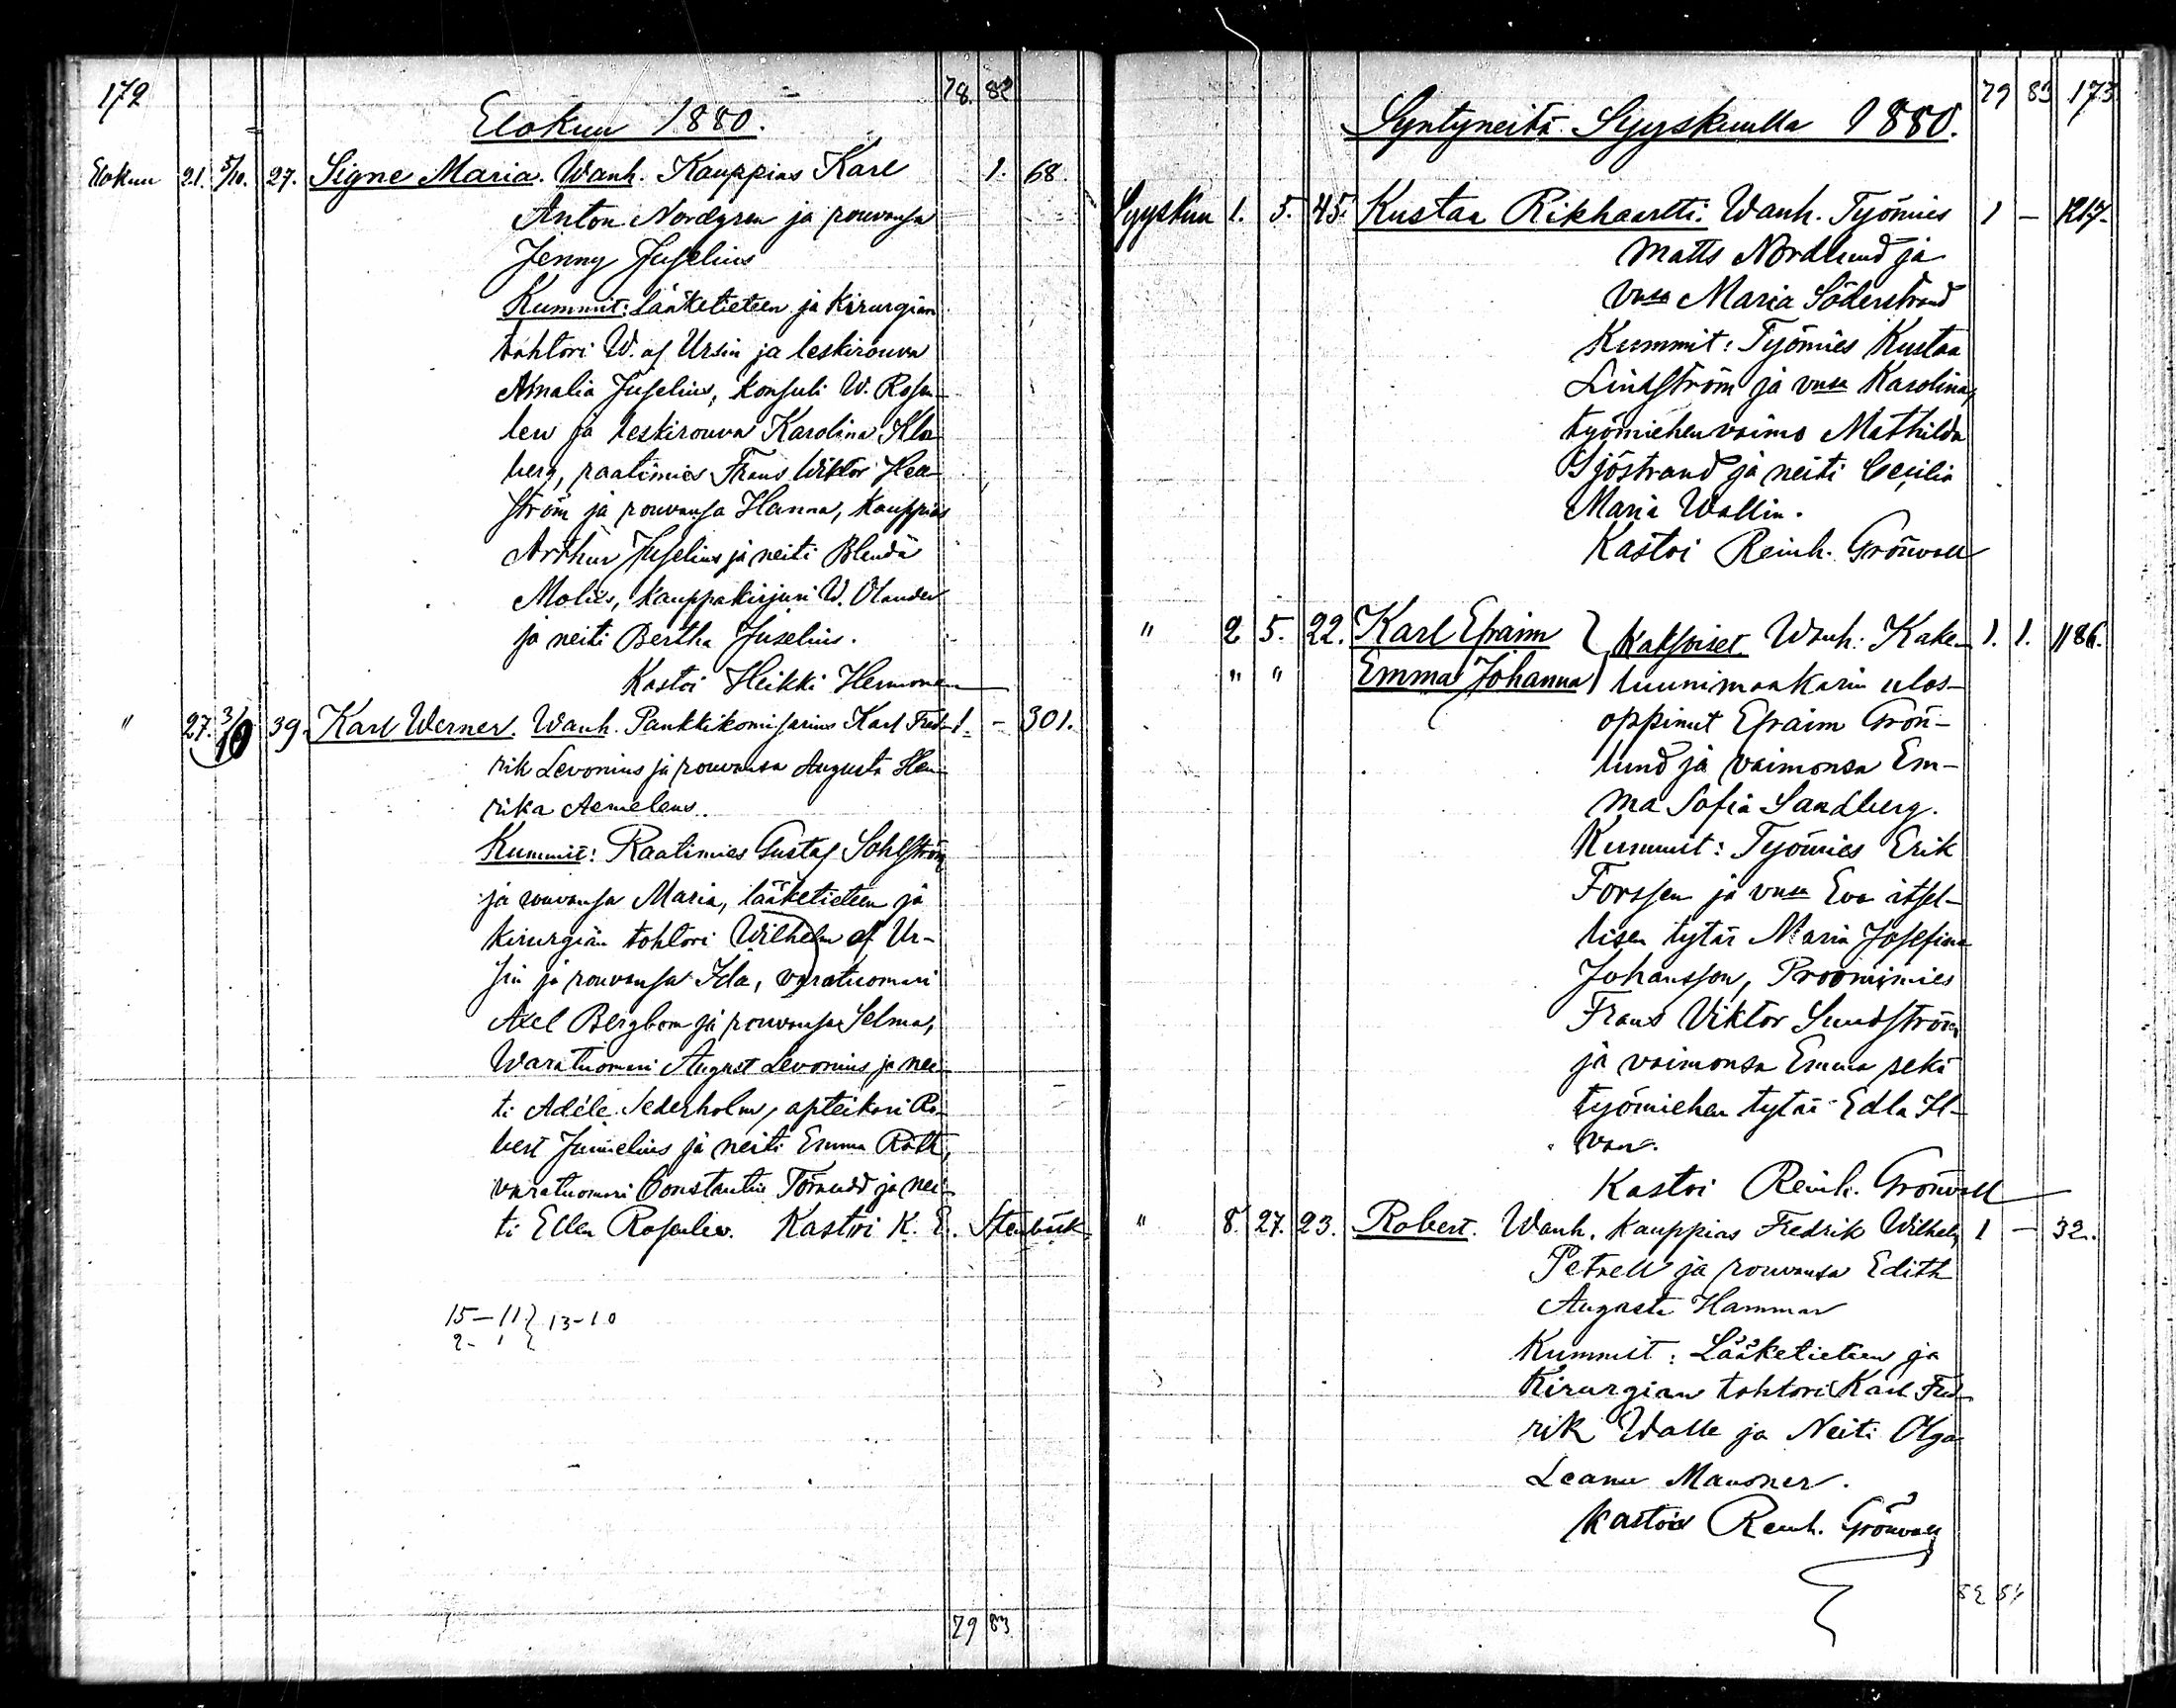 172
78. 82
Elokuu 1880.
Elokuu 21. 5/10. 27. Signe Maria. Wanh. Kauppias Karl 1. 68.
Anton Nordgren ja rouvansa
Jenny Juselius
Kummit: Lääketieteen ja kirurgian
tohtori W. af Ursin ja leskirouva
Amalia Juselius, konsuli W. Rosen-
lew ja leskirouva Karolina
berg, raatimies Frans Wiktor
ström ja rouvansa Hanna, kauppias
Arthur Juselius ja neiti Blenda
Moliis, kauppakirjuri W. Olander
ja neiti Bertha Juselius.
Kastoi Heikki
" 27. 3/10 39. Karl Werner. Wanh. Pankkikomisarius Karl Fred- 1. - 301.
rik Levonius ja rouvansa Augusta Hen-
rika Aemeleus.
Kummit: Raatimies Gustaf Sohlström
ja rouvansa Maria, lääketieteen ja
kirurgian tohtori Wilhelm af Ur-
sin ja rouvansa Ida, varatuomari
Axel Bergbom ja rouvansa Selma,
Waratuomari August Levonius ja nei-
ti Adéle Sederholm, apteikari Ro-
bert Juselius ja neiti Emma
varatuomari Constantin Törnudd ja nei-
ti Ellen Rosenlew. Kastoi K. E. Stenbäck
15-11 } 13-10
2- 1
79 83
79 83 173
Syntyneitä Syyskuulla 1880.
Syyskuu 1. 5. 45. Kustaa Rikhartti. Wanh. Työmies 1 - 1217.
Matts Nordlund ja
vnsa Maria Söderstrand
Kummit: Työmies Kustaa
Lindström ja vnsa Karolina,
työmiehen vaimo Mathilda
Sjöstrand ja neiti Cecilia
Maria Wallin.
Kastoi Reinh. Grönvall
" 2 5. 22. Karl Efraim } Kaksoiset Wanh. Kake- 1. 1. 1186.
" " Emma Johanna luunimaakarin ulos-
oppinut Efraim Grön-
lund ja vaimonsa Em-
ma Sofia Sandberg.
Kummit: Työmies Erik
Forssen ja vnsa Eva itsel-
lisen tytär Maria Josefina
Johansson, Proomimies
Frans Viktor Sundström
ja vaimonsa Emma sekä
työmiehen tytär Edla Il-
van.
Kastoi Reinh. Grönvall
" 8. 27. 23. Robert. Wanh. Kauppias Fredrik Wilhelm 1 - 32.
Petrell ja rouvansa Edith
Augusta Hammar
Kummit: Lääketieteen ja
Kirurgian tohtori Karl Fred-
rik Walle ja Neiti Olga
Mausner.
Kastoi Reinh. Grönvall